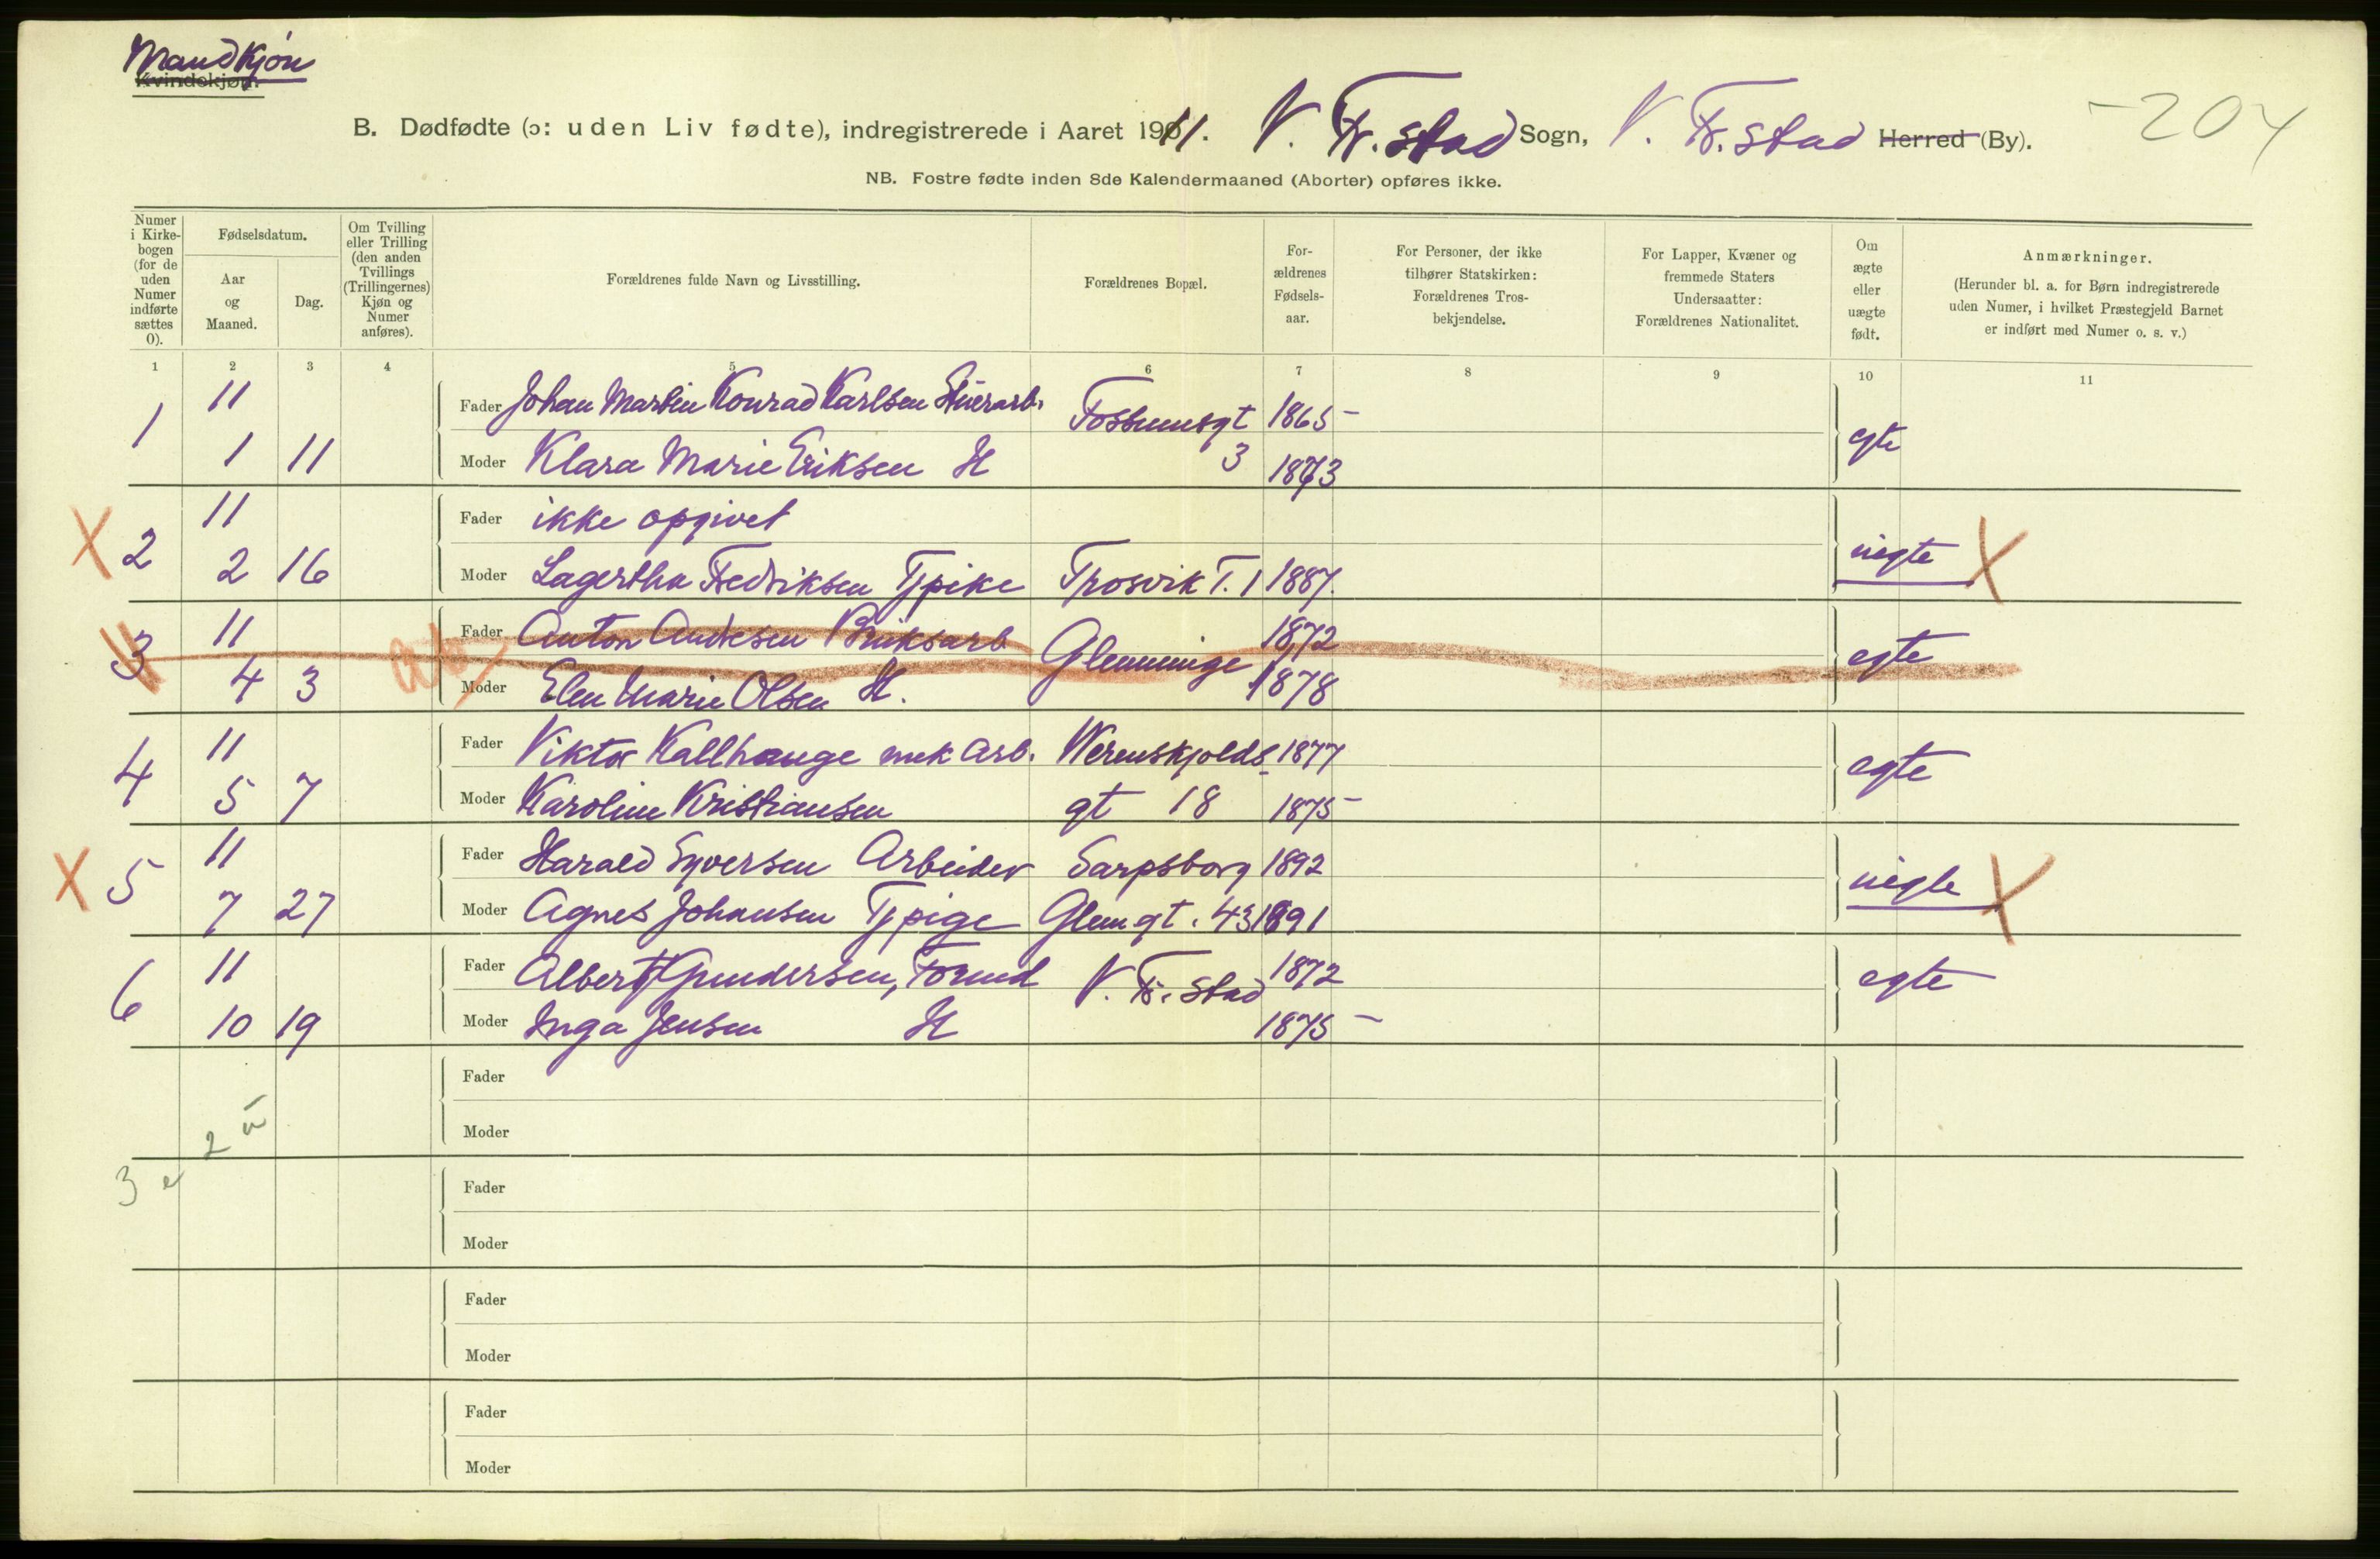 Mandkjøn
Kvindekjøn.
B. Dødfødte (ɔ: uden Liv fødte), indregistrerede i Aaret 1911. V. Fr.stad Sogn, V. Fr.stad Herred (By).
-204
NB. Fostre fødte inden 8de Kalendermaaned (Aborter) opføres ikke.
Numer i Kirkebogen (for de uden Numer indførte sættes 0).
Fødselsdatum.
Aar og Maaned.
Dag.
Om Tvilling eller Trilling (den anden Tvillings (Trillingernes) Kjøn og Numer anføres).
Forældrenes fulde Navn og Livsstilling.
Forældrenes Bopæl.
For-ældrenes Fødsels-aar.
For Personer, der ikke tilhører Statskirken: Forældrenes Tros-bekjendelse.
For Lapper, Kvæner og fremmede Staters Undersaatter: Forældrenes Nationalitet.
Om ægte eller uægte født.
Anmærkninger. (Herunder bl. a. for Børn indregistrerede uden Numer, i hvilket Præstegjeld Barnet er indført med Numer o. s. v.)
1 2 3 4 5 6 7 8 9 10 11
1 11 Fader Johan Martin Konrad Karlsen Fossumsgt 1865 egte
1 11 Moder Klara Marie Eriksen H 3 1873
X 2 11 Fader ikke opgivet uegte X
2 16 Moder Lagertha Fredriksen Tjpike Trosvik T. 1 1887.
3 11 Fader Anton Andresen Bruksarb Glemminge 1872 egte
4 3 Moder Elen Marie Olsen H. 1878
4 11 Fader Viktor Kallhauge mek arb. Werenskjolds 1877 egte
5 7 Moder Karoline Kristiansen gt 18 1875
X 5 11 Fader Harald Syversen Arbeider Sarpsborg 1892 uegte X
7 27 Moder Agnes Johansen Tjpige Glemgt. 43 1891
6 11 Fader Albert Gundersen, Formd V. Fr.stad 1872 egte
10 19 Moder Inga Jensen H 1875
Fader
2 u
Moder
3 e
Fader
Moder
Fader
Moder
Fader
Moder